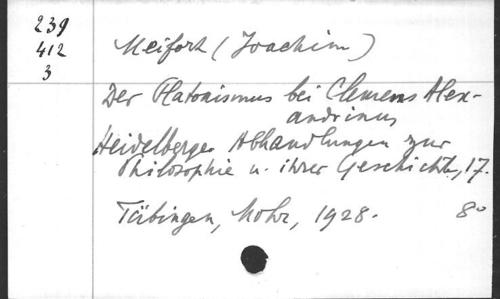 239
412
3
Meifort (Joachim)
Der Platonismus bei Clemens Alex-
andrinus
Heidelberger Abhandlungen zur
Philosophie u. ihrer Geschichte, 17.
Tübingen, Mohr, 1928. 8°